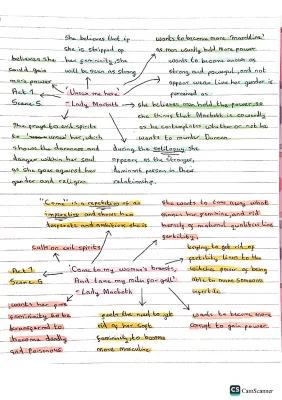 she believes that if
she is stripped of
her femininity, she
will be seen as strong
wants to become more "manlike"
as men usually hold more power
wants to become known as
strong and powerful, and not
appear weak like her gender is
perceived as
believes she
could gain
more power
Act 1
Scene 5
'Unsex me here'
- Lady Macbeth
she believes men hold the power, so
she thinks that Macbeth is cowardly
as he contemplates whether or not he
wants to murder Duncan
She prays to evil spirits
to unsex her, which
shows the darkness and
danger within her soul
as she goes against her
gender and religion
during the soliloquy she
appears as the stronger,
dominant person in their
relationship.
"Come" is a repetition of an
imperative and shows how
desperate and ambitious she is
She wants to take away what
makes her feminine and rid
herself of maternal qualities like
fertility
calls on evil spirits
Act 1
Scene 5
'Come to my woman's breasts,
And take my milk for gall'
- Lady Macbeth
trying to get rid of
fertility links to the
witches power of being
able to make someone
infertile
wants her pure
femininity to be
transferred to
become deadly
and poisonous
feels the need to get
rid of her soft
femininity to become
more masculine
wants to become more
corrupt to gain power.
CS CamScanner